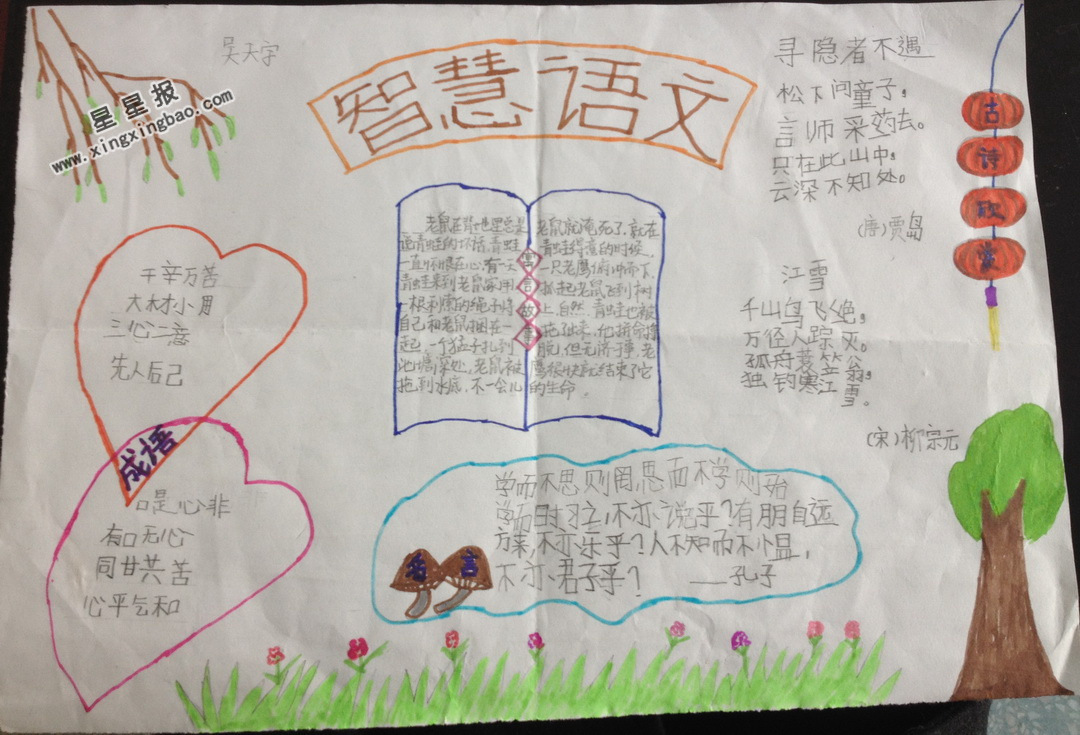 吴天宇
星星报
www.xingxingbao.com
智慧语文
寻隐者不遇
松下问童子，
言师采药去。
只在此山中，
云深不知处。
(唐)贾岛
江雪
千山鸟飞绝，
万径人踪灭。
孤舟蓑笠翁，
独钓寒江雪。
(宋)柳宗元
古诗欣赏
千辛万苦
大材小用
三心二意
先人后己
成语
口是心非
有口无心
同甘共苦
心平气和
寓言故事
老鼠在背地里总是
说青蛙的坏话，青蛙
一直怀恨在心，有一天
青蛙来到老鼠家用
一根刺
的绳子将
自己和老鼠捆在一
起，一个猛子扎到
池塘深处，老鼠被
拖到水底，不一会儿
老鼠就淹死了，就在
青蛙得意的时候，
一只老鹰俯冲而下，
抓起老鼠飞到树
上，自然，青蛙也被
拖了出来，他拼命挣
脱，但无济于事，老
鹰很快就结束了它
的生命。
名言
学而不思则罔思而不学则殆
学而时习之，不亦说乎？有朋自远
方来，不亦乐乎？人不知而不愠，
不亦君子乎？ ——孔子